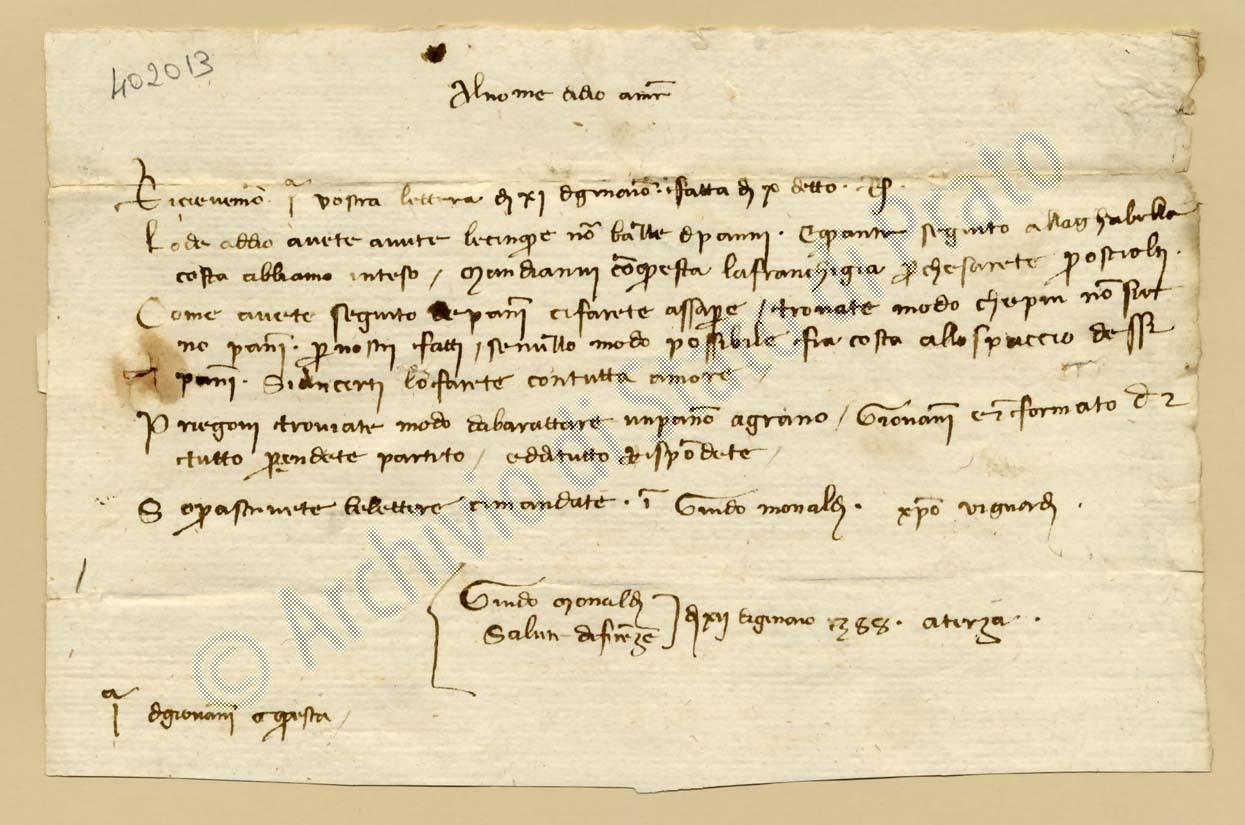 402013
Al nome didio amē
Ricievemo ī vostra lettera dì xi di ginaio fatta dì x detto. Rs.
Lode addio avete avute le cinque nō balle di panni. Quante seguito alla ghabella
costa abbiamo inteso / mandianvi cō questa la franchigia perche sarete prosciolti.
Come avete seguito de panī ci farete assapere / trovate modo che piu nō sia
no panī. per nostri fatti / se nullo modo possibile fia costa allo spaccio dessi
panī. Sian certi lo farete con tutta amore /
Priegovi troviate modo di barattare un panno a grano / Giovanī e informato di
tutto prendete partito / e di tutto rispōdete /
Soprascrivete le lettere ci mandate. ī Guido monaldi. xpō viguardi.
Guido Monaldi
Salute di firēze
dì xii di ginaio 1388. a terza.
ī di giovanī e cō questa /
© Archivio di Stato di Prato